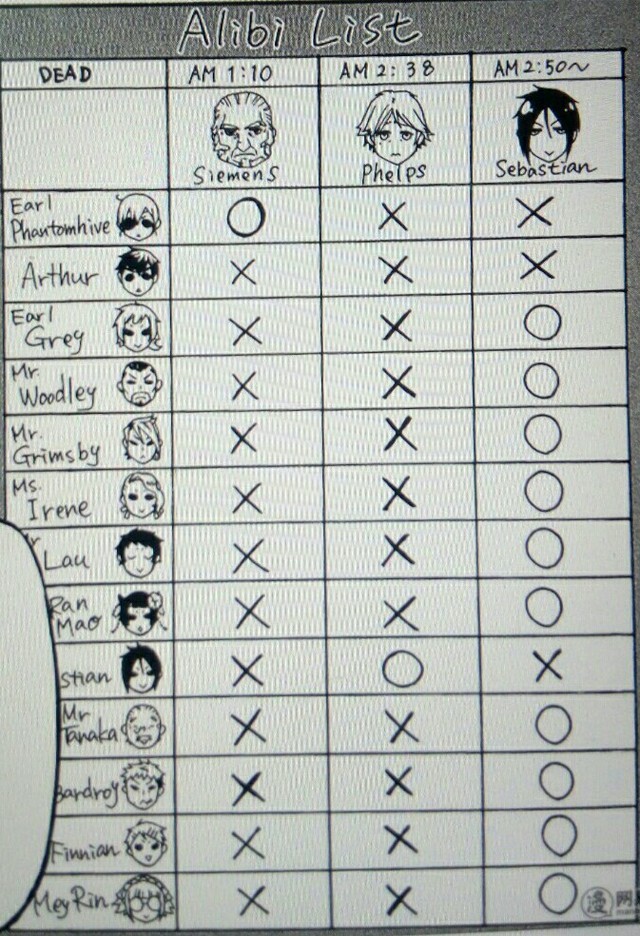 Alibi List
DEAD AM 1:10 AM 2:38 AM 2:50~
Siemens Phelps Sebastian
Earl
Phantomhive ○ × ×
Arthur × × ×
Earl
Grey × × ○
Mr.
Woodley × × ○
Mr.
Grimsby × × ○
Ms.
Irene × × ○
Lau × × ○
Ran
Mao × × ○
stian × ○ ×
Mr
Tanaka × × ○
Bardroy × × ○
Finnian × × ○
MeyRin × × ○
漫 网